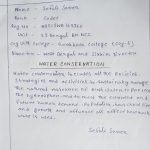 Name :- Sefali Soren
Rank :- Cadet
Unit :- 53 Bengal BN NCC
Directorate :- West Bengal and Sikkim Directorate
WATER CONSERVATION
Water conservation includes all the policies,
strategies and activities to sustainably manage
the natural resource of fresh water, to protect
the hydrosphere, and to meet the current and
future human demand. Population, household size
and growth and affluence all affect how much
water is used.
Sefali Soren